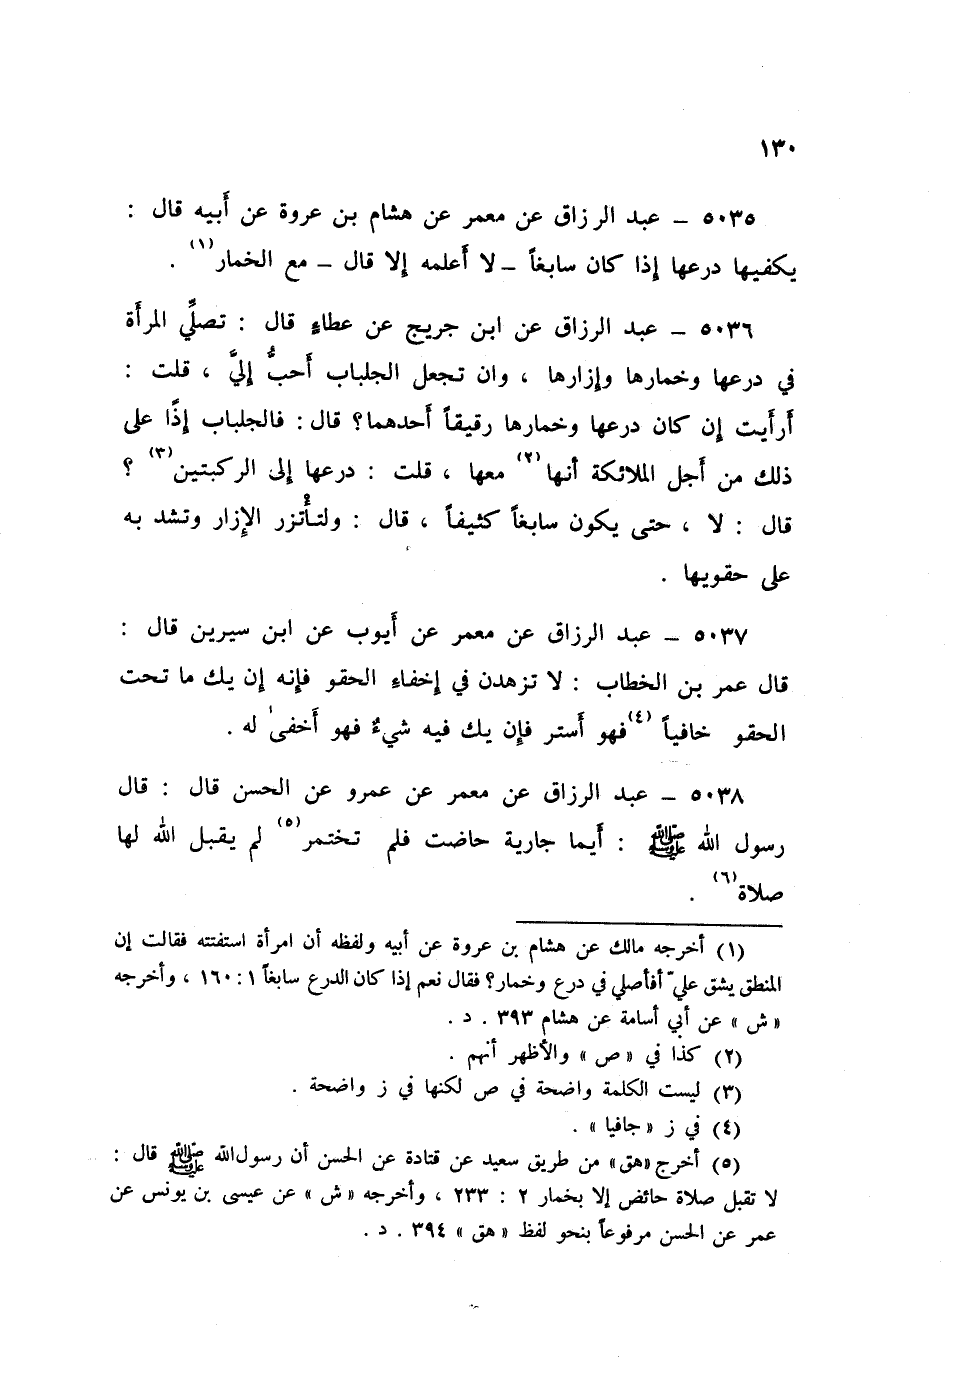 ١٣٠
٥٠٣٥ ــ عبد الرزاق عن معمر عن هشام بن عروة عن أَبيه قال :
يكفيها درعها إذا كان سابغاً ــ لا أَعلمه إلا قال ــ مع الخمار(١) .
٥٠٣٦ ــ عبد الرزاق عن ابن جريج عن عطاءٍ قال : تصلِّي المرأَة
في درعها وخمارها وإزارها ، وان تجعل الجلباب أَحبُّ إليَّ ، قلت :
أَرأَيت إن كان درعها وخمارها رقيقاً أَحدهما؟ قال : فالجلباب إذًا على
ذلك من أَجل الملائكة أنها(٢) معها ، قلت : درعها إلى الركبتين(٣) ؟
قال : لا ، حتى يكون سابغاً كثيفاً ، قال : ولتأْتزر الإزار وتشد به
على حقويها .
٥٠٣٧ ــ عبد الرزاق عن معمر عن أَيوب عن ابن سيرين قال :
قال عمر بن الخطاب : لا تزهدن في إخفاءِ الحقو فإنه إن يك ما تحت
الحقو خافياً(٤) فهو أَستر فإن يك فيه شيءٌ فهو أَخفىٰ له .
٥٠٣٨ ــ عبد الرزاق عن معمر عن عمرو عن الحسن قال : قال
رسول الله ﷺ : أَيما جارية حاضت فلم تختمر(٥) لم يقبل الله لها
صلاة(٦) .
(١) أخرجه مالك عن هشام بن عروة عن أبيه ولفظه أن امرأة استفتته فقالت إن
المنطق يشق عليّ أفأصلي في درع وخمار؟ فقال نعم إذا كان الدرع سابغاً ١ : ١٦٠ ، وأخرجه
« ش » عن أبي أسامة عن هشام ٣٩٣ . د .
(٢) كذا في « ص » والأظهر أنهم .
(٣) ليست الكلمة واضحة في ص لكنها في ز واضحة .
(٤) في ز « جافيا » .
(٥) أخرج «هق» من طريق سعيد عن قتادة عن الحسن أن رسول الله ﷺ قال :
لا تقبل صلاة حائض إلا بخمار ٢ : ٢٣٣ ، وأخرجه « ش » عن عيسى بن يونس عن
عمر عن الحسن مرفوعاً بنحو لفظ « هق » ٣٩٤ . د .